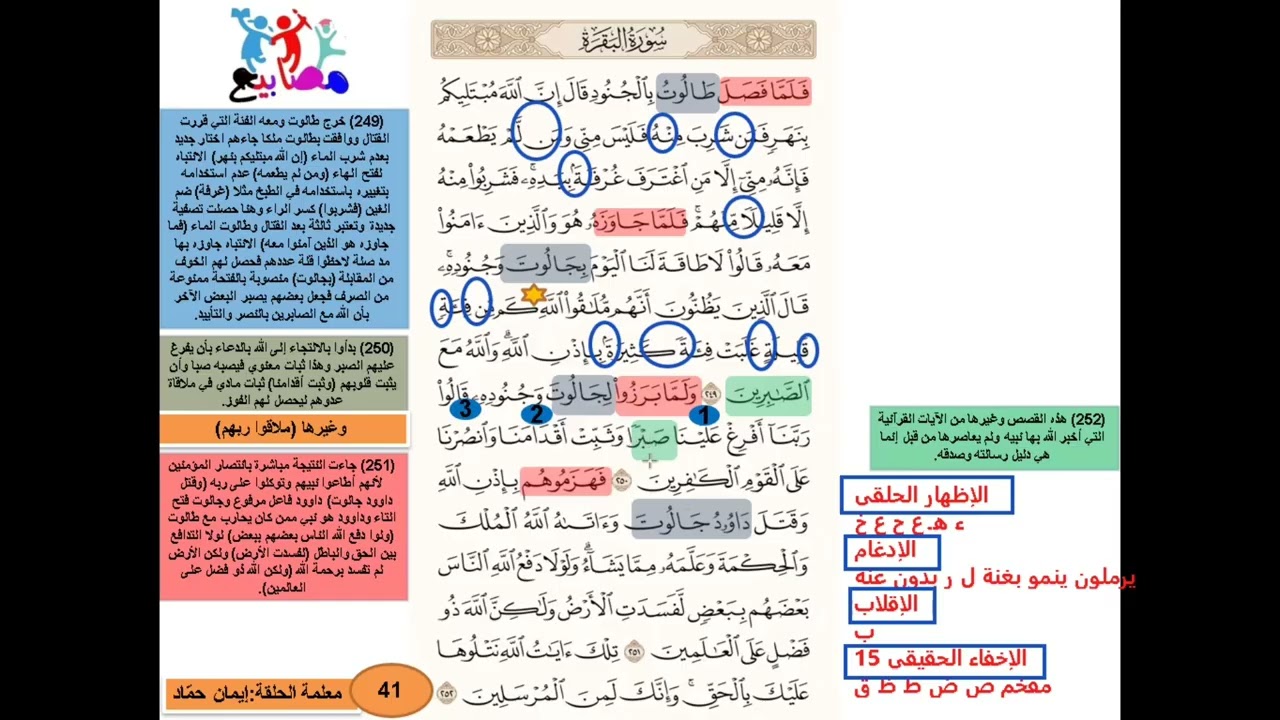 سُورَةُ البَقَرَةِ
فَلَمَّا فَصَلَ طَالُوتُ بِالْجُنُودِ قَالَ إِنَّ اللَّهَ مُبْتَلِيكُم
بِنَهَرٍ فَمَن شَرِبَ مِنْهُ فَلَيْسَ مِنِّي وَمَن لَّمْ يَطْعَمْهُ
فَإِنَّهُ مِنِّي إِلَّا مَنِ اغْتَرَفَ غُرْفَةً بِيَدِهِ فَشَرِبُوا مِنْهُ
إِلَّا قَلِيلًا مِّنْهُمْ فَلَمَّا جَاوَزَهُ هُوَ وَالَّذِينَ ءَامَنُوا
مَعَهُ قَالُوا لَا طَاقَةَ لَنَا الْيَوْمَ بِجَالُوتَ وَجُنُودِهِ
قَالَ الَّذِينَ يَظُنُّونَ أَنَّهُم مُّلَاقُوا اللَّهِ كَم مِّن فِئَةٍ
قَلِيلَةٍ غَلَبَتْ فِئَةً كَثِيرَةً بِإِذْنِ اللَّهِ وَاللَّهُ مَعَ
الصَّابِرِينَ ٢٤٩ وَلَمَّا بَرَزُوا لِجَالُوتَ وَجُنُودِهِ قَالُوا
1 2 3
رَبَّنَا أَفْرِغْ عَلَيْنَا صَبْرًا وَثَبِّتْ أَقْدَامَنَا وَانصُرْنَا
عَلَى الْقَوْمِ الْكَافِرِينَ ٢٥٠ فَهَزَمُوهُم بِإِذْنِ اللَّهِ
وَقَتَلَ دَاوُودُ جَالُوتَ وَءَاتَاهُ اللَّهُ الْمُلْكَ
وَالْحِكْمَةَ وَعَلَّمَهُ مِمَّا يَشَاءُ وَلَوْلَا دَفْعُ اللَّهِ النَّاسَ
بَعْضَهُم بِبَعْضٍ لَّفَسَدَتِ الْأَرْضُ وَلَٰكِنَّ اللَّهَ ذُو
فَضْلٍ عَلَى الْعَالَمِينَ ٢٥١ تِلْكَ ءَايَاتُ اللَّهِ نَتْلُوهَا
عَلَيْكَ بِالْحَقِّ وَإِنَّكَ لَمِنَ الْمُرْسَلِينَ ٢٥٢
(252) هذه القصص وغيرها من الآيات القرآنية
التي أخبر الله بها نبيه ولم يعاصرها من قبل إنما
هي دليل رسالته وصدقه.
الإظهار الحلقي
ء هـ ع ح غ خ
الإدغام
يرملون ينمو بغنة ل ر بدون غنه
الإقلاب
ب
الإخفاء الحقيقي 15
مفخم ص ض ط ظ ق
مصابيح
(249) خرج طالوت ومعه الفئة التي قررت
القتال ووافقت بطالوت ملكا جاءهم اختار جديد
بعدم شرب الماء (إن الله مبتليكم بنهر) الانتباه
لفتح الهاء (ومن لم يطعمه) عدم استخدامه
بتغييره باستخدامه في الطبخ مثلا (غرفة) ضم
الغين (فشربوا) كسر الراء وهنا حصلت تصفية
جديدة وتعتبر ثالثة بعد القتال وطالوت الماء (فما
جاوزه هو الذين آمنوا معه) الانتباه جاوزه بها
مد صلة لاحظوا قلة عددهم فحصل لهم الخوف
من المقابلة (بجالوت) منصوبة بالفتحة ممنوعة
من الصرف فجعل بعضهم يصبر البعض الآخر
بأن الله مع الصابرين بالنصر والتأييد.
(250) بدأوا بالالتجاء إلى الله بالدعاء بأن يفرغ
عليهم الصبر وهذا ثبات معنوي فيصبه صبا وأن
يثبت قلوبهم (وثبت أقدامنا) ثبات مادي في ملاقاة
عدوهم ليحصل لهم الفوز.
وغيرها (ملاقوا ربهم)
(251) جاءت النتيجة مباشرة بانتصار المؤمنين
لأنهم أطاعوا نبيهم وتوكلوا على ربه (وقتل
داوود جالوت) داوود فاعل مرفوع وجالوت فتح
التاء وداوود هو نبي ممن كان يحارب مع طالوت
(ولوا دفع الله الناس بعضهم ببعض) لولا التدافع
بين الحق والباطل (لفسدت الأرض) ولكن الأرض
لم تفسد برحمة الله (ولكن الله ذو فضل على
العالمين).
معلمة الحلقة:إيمان حمّاد
41